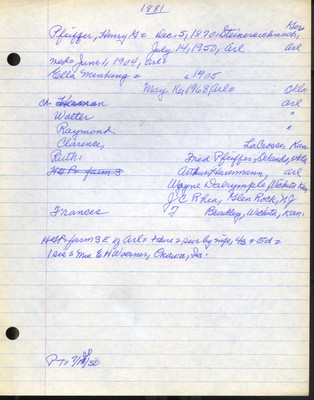 1881
Pfeiffer, Henry G = Dec. 5, 1870 = Steinreichnach, Ger
July 14, 1950, Arl arl
md = June 1, 1904, Arl =
Ella Menking = = 1975
May 16, 1968, Arl = Okla
Ch - Herman arl
Walter "
Raymond "
Clarence, LaCrosse, Kan
Ruth = Fred Pfeiffer, Orlando, Okla
H & P = farm 3 Arthur Hanemann, arl
Wayne Dalrymple, Wichita Kan
J C Rhea, Glen Rock, NJ
Frances F Beadley, Wichita, Kan.
H & P = farm 3 E of Arl = & there = sur by wife, 4s & 5 d =
1 sis = Mrs E H Woerner, Onawa, Ia.
PT = 7/20/50